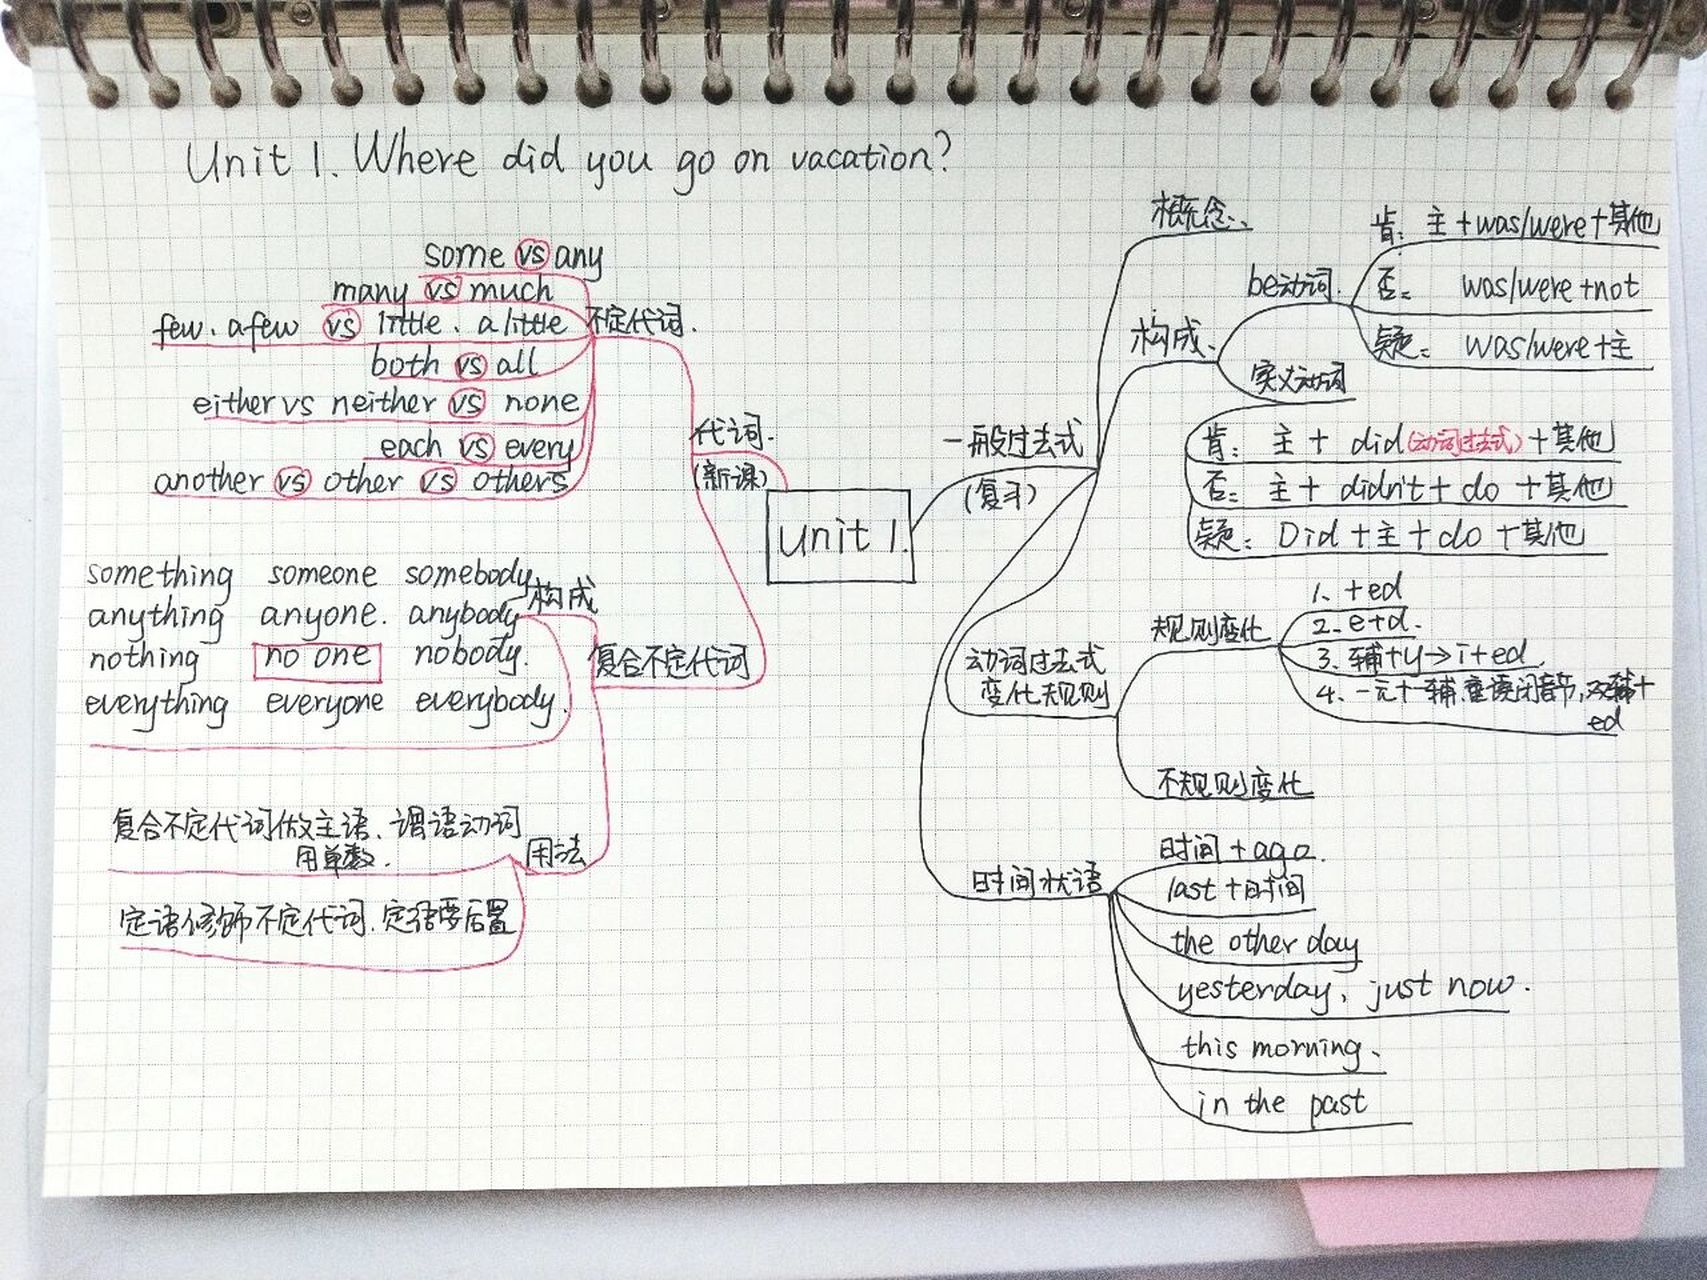 Unit 1. Where did you go on vacation?
some vs any
many vs much
few. a few vs little. a little
both vs all
either vs neither vs none
each vs every
another vs other vs others
不定代词.
代词.
(新课)
something someone somebody
anything anyone. anybody
nothing no one nobody.
everything everyone everybody.
构成
复合不定代词
复合不定代词做主语、谓语动词
用单数.
定语修饰不定代词.定语要后置
用法
unit 1.
一般过去式
(复习)
概念.
构成.
be动词.
肯: 主+was/were+其他
否: was/were+not
疑: was/were+主
实义动词
肯: 主+ did(动词过去式)+其他
否: 主+ didn't+ do +其他
疑: Did+主+do+其他
动词过去式
变化规则
规则变化
1. +ed
2. e+d.
3. 辅+y→i+ed.
4. 一元十一辅.重读闭音节,双辅+
ed
不规则变化
时间状语
时间+ago.
last+时间
the other day
yesterday, just now.
this morning.
in the past